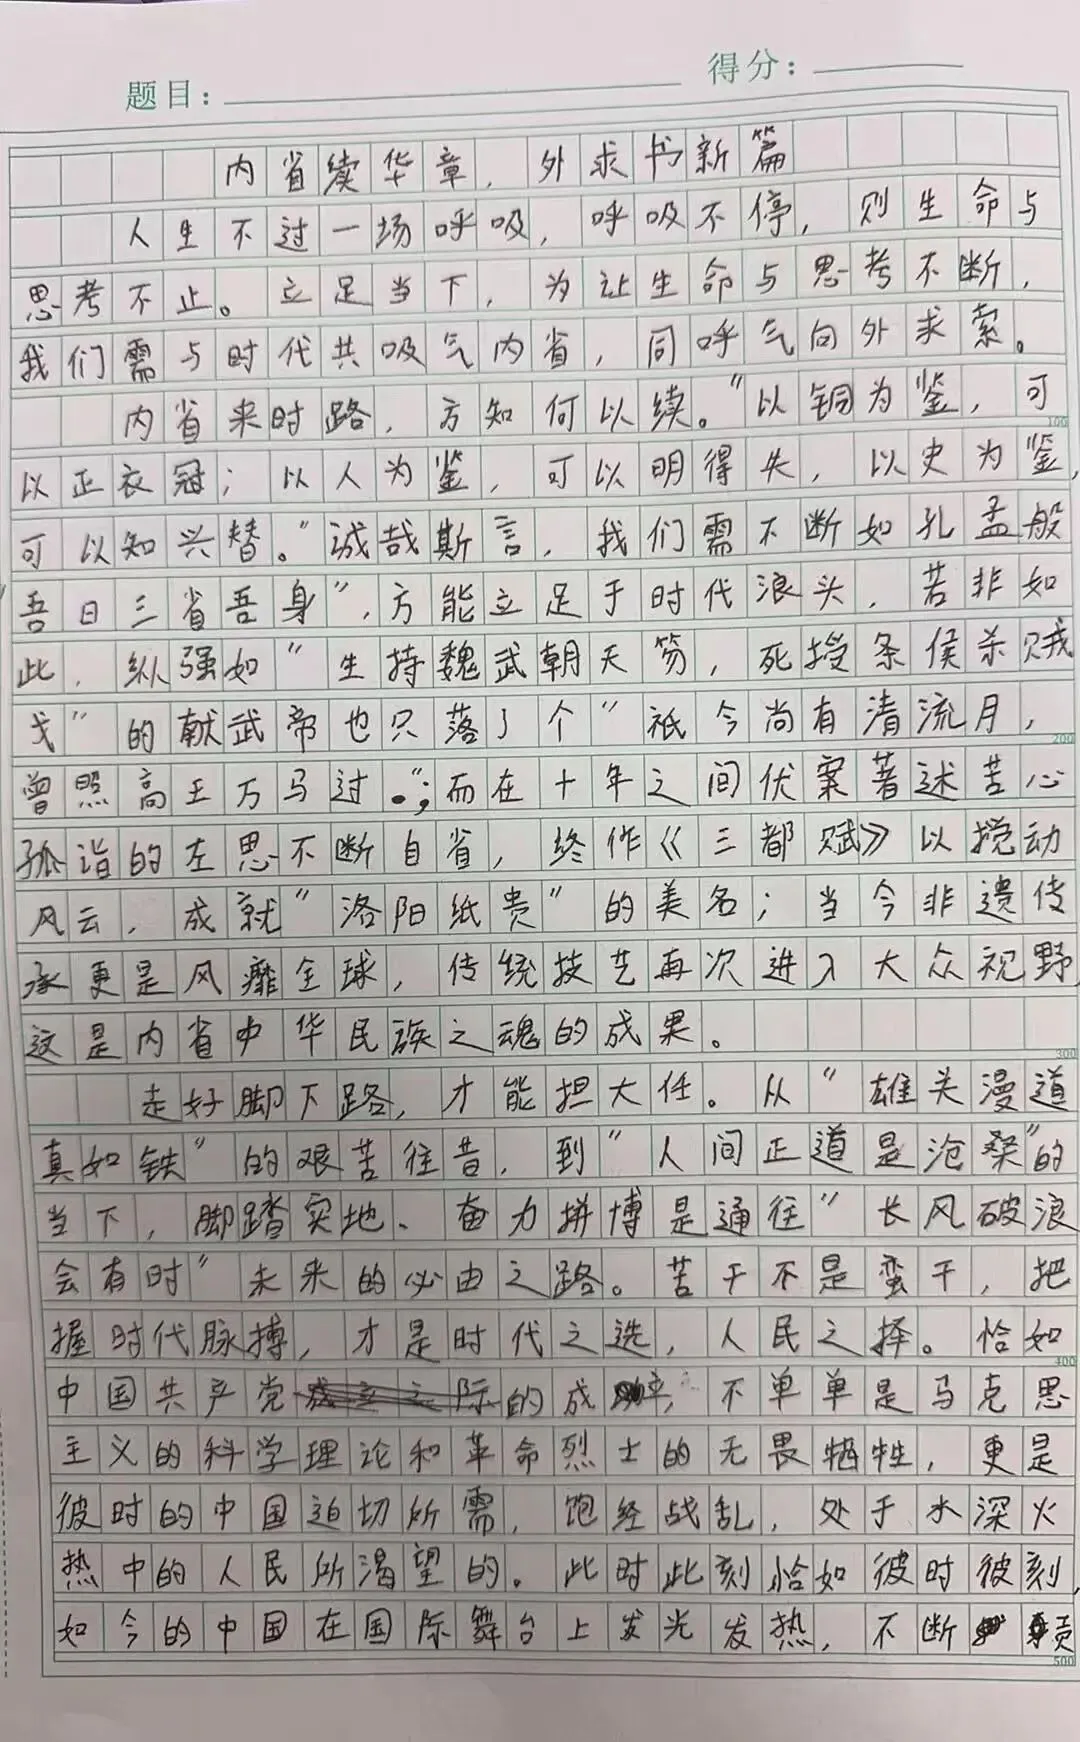 题目：
得分：
内省续华章，外求书新篇
人生不过一场呼吸，呼吸不停，则生命与
思考不止。立足当下，为让生命与思考不断，
我们需与时代共吸气内省，同呼气向外求索。
内省来时路，方知何以续。“以铜为鉴，可
100
以正衣冠；以人为鉴，可以明得失，以史为鉴，
可以知兴替。”诚哉斯言，我们需不断如孔孟般
“吾日三省吾身”，方能立足于时代浪头，若非如
此，纵强如“生持魏武朝天笏，死授条侯杀贼
戈”的献武帝也只落了个“祇今尚有清流月，
200
曾照高王万马过。”；而在十年之间伏案著述苦心
孤诣的左思不断自省，终作《三都赋》以搅动
风云，成就“洛阳纸贵”的美名；当今非遗传
承更是风靡全球，传统技艺再次进入大众视野，
这是内省中华民族之魂的成果。
300
走好脚下路，才能担大任。从“雄关漫道
真如铁”的艰苦往昔，到“人间正道是沧桑”的
当下，脚踏实地、奋力拼搏是通往“长风破浪
会有时”未来的必由之路。苦干不是蛮干，把
握时代脉搏，才是时代之选，人民之择。恰如
400
中国共产党的成，不单单是马克思
主义的科学理论和革命烈士的无畏牺牲，更是
彼时的中国迫切所需，饱经战乱，处于水深火
热中的人民所渴望的。此时此刻恰如彼时彼刻，
如今的中国在国际舞台上发光发热，不断
500